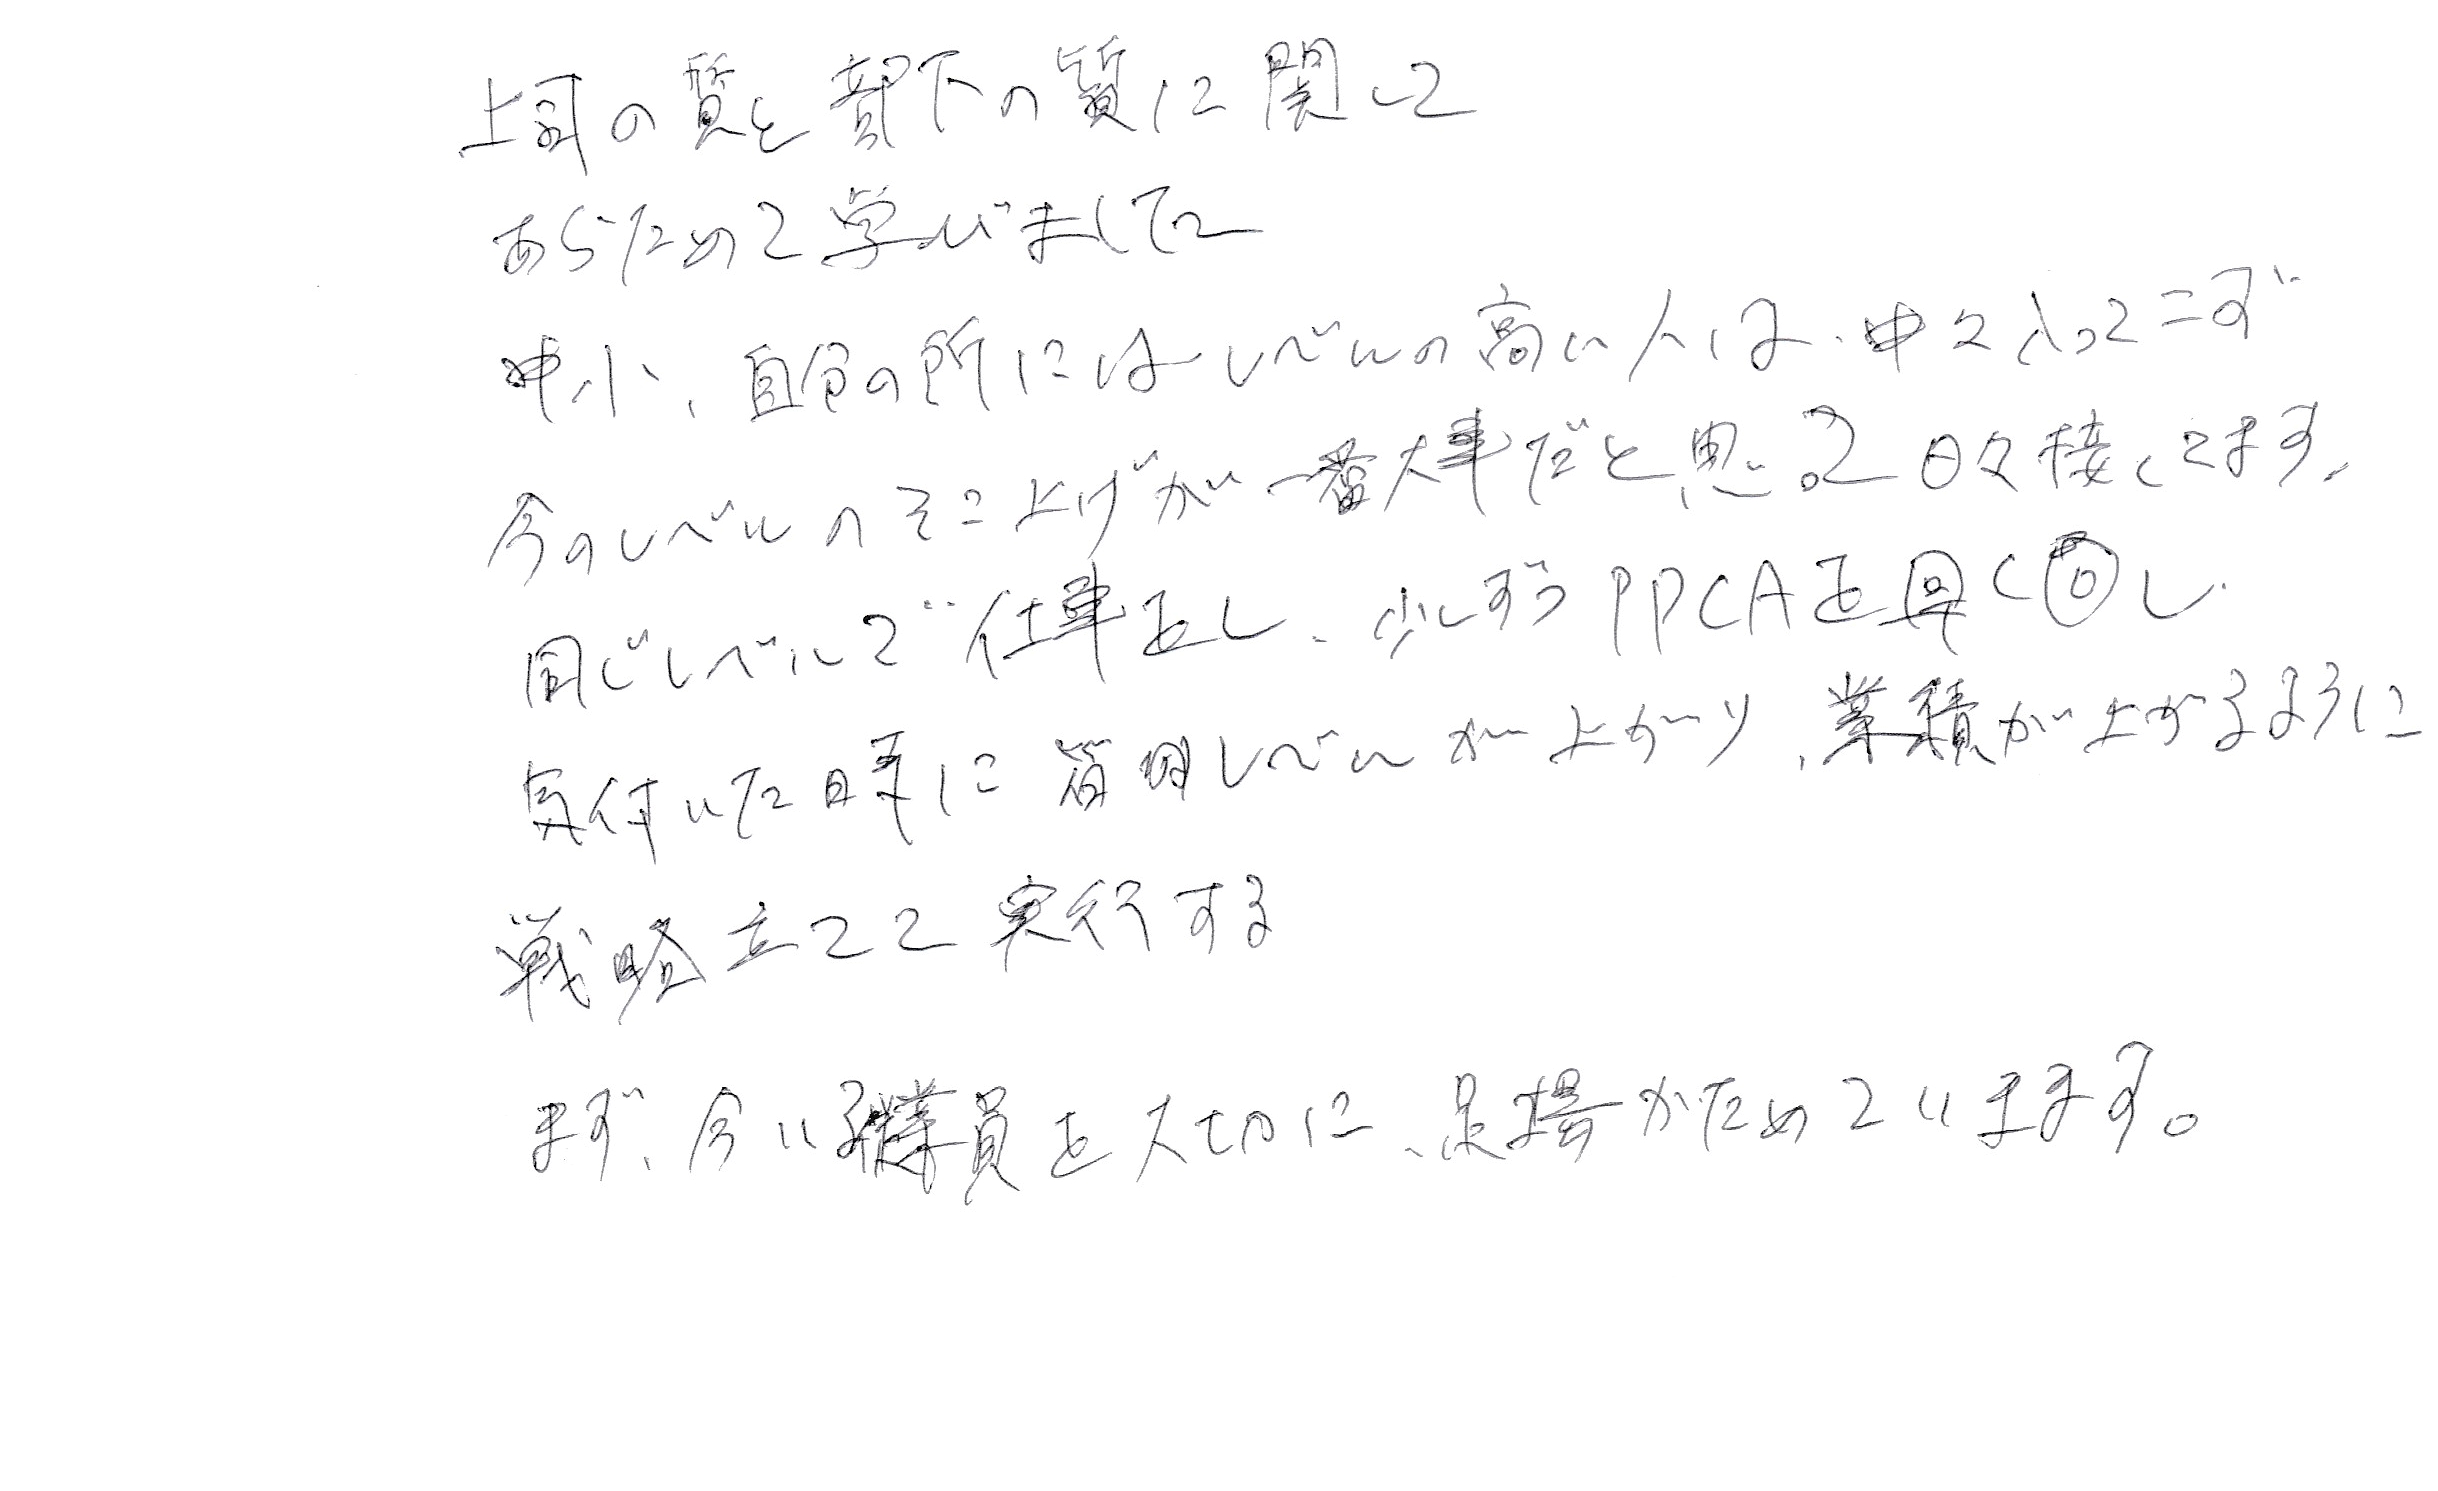 上司の質と部下の質に関して
あらためて学びまして
中小、自分の所にはレベルの高い人は、中々入ってこず
今のレベルのそこ上げが一番大事だと思って日々接してます。
同じレベルで仕事をし、少しずつPDCAを早く回し
気付いた時に管理レベルが上がり、業績が上がるように
戦略立てて実行する
まず、今いる従業員を大切に、足場かためていきます。